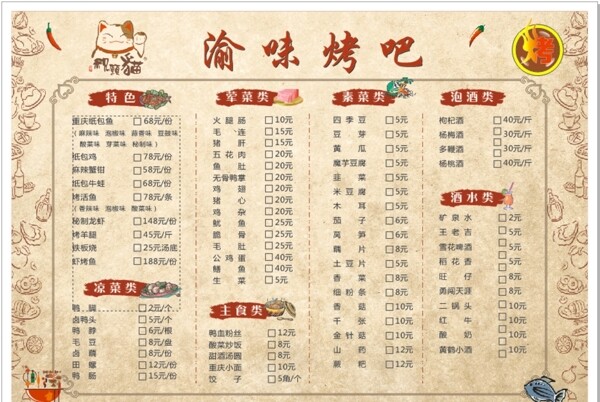 渝味烤吧
招财猫
烤
特色
重庆纸包鱼 68元/份
(麻辣味 泡椒味 蒜香味 豆豉味
酸菜味 芽菜味 秘制味)
纸包鸡 78元/份
麻辣蟹钳 58元/份
纸包牛蛙 68元/份
烤活鱼 78元/条
(香辣味 泡椒味 酸菜味)
秘制龙虾 148元/份
烤羊腿 45元/斤
铁板烧 25元汤底
虾烤鱼 188元/份
凉菜类
鸭脚 2元/个
卤鸭头 5元/个
鸭脖 6元/根
毛豆 8元/盘
卤藕 8元/份
田螺 12元/份
鸭肠 15元/份
荤菜类
火腿肠 10元
毛连 15元
猪肝 15元
五花肉 20元
鱼肚 20元
无骨鸭掌 20元
鸡翅 20元
猪心 20元
鸡杂 20元
鱿鱼 25元
脆骨 25元
毛肚 25元
公鸡蛋 40元
鳝鱼 40元
生菜 5元
主食类
鸭血粉丝 12元
酸菜炒饭 8元
甜酒汤圆 8元
重庆小面 10元
饺子 5角/个
素菜类
四季豆 5元
豆芽 5元
黄瓜 5元
魔芋豆腐 5元
韭菜 5元
米豆腐 5元
木耳 5元
茄子 6元
莴笋 6元
藕片 8元
土豆片 5元
香菜 8元
细粉条 8元
香菇 10元
千张 10元
金针菇 10元
山药 12元
蕨粑 12元
泡酒类
枸杞酒 40元/斤
杨梅酒 30元/斤
多鞭酒 30元/斤
杨桃酒 40元/斤
酒水类
矿泉水 2元
王老吉 5元
雪花啤酒 5元
稻花香 5元
旺仔 8元
勇闯天涯 8元
二锅头 10元
红牛 10元
酸奶 10元
黄鹤小酒 10元